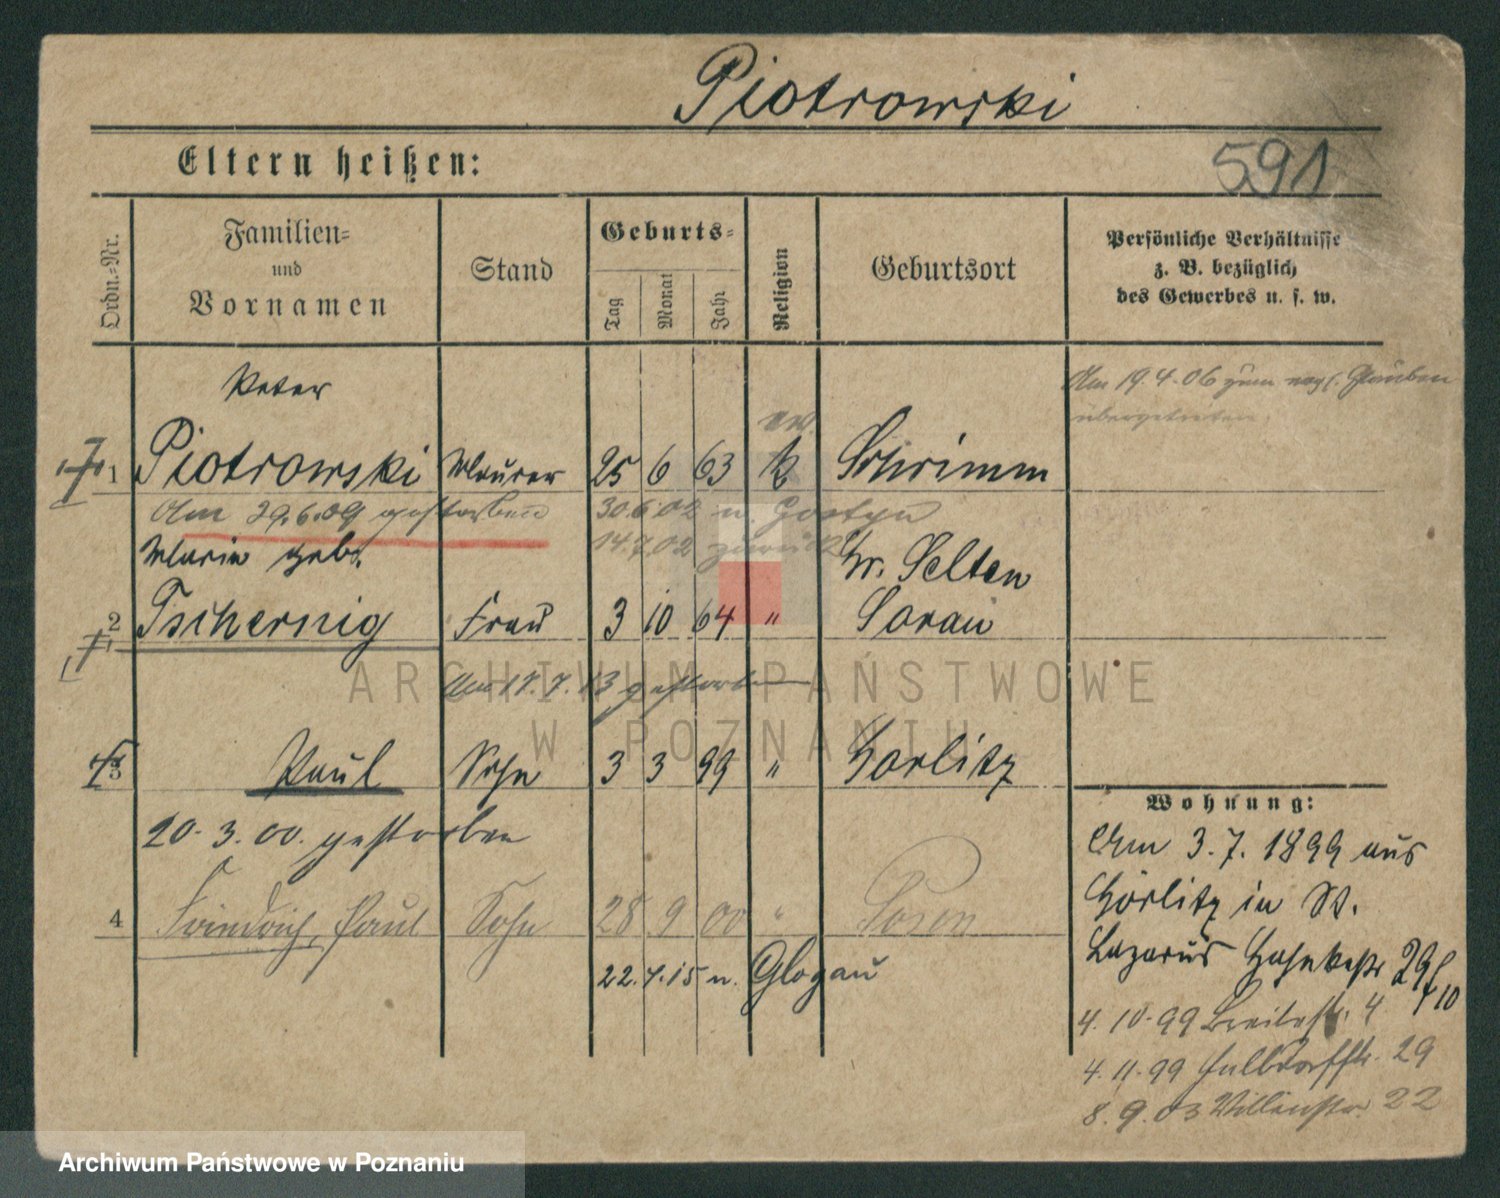 Piotrowski
591
Eltern heißen:
Ordn.=Nr.
Familien=
und
Vornamen
Stand
Geburts=
Tag
Monat
Jahr
Religion
Geburtsort
Persönliche Verhältnisse
z. B. bezüglich
des Gewerbes u. s. w.
Peter
Am 19.4.06 zum evgl. Glauben
übergetreten
ev.
1 Piotrowski Maurer 25 6 63 k Schrimm
Am 29.6.09 gestorben 30.6.02 n. Gostyn
14.7.02 zurück
Maria geb. Gr. Selten
2 Tschernig Frau 3 10 64 " Sorau
Am 17.7.13 gestorben
3 Paul Sohn 3 3 99 " Görlitz
20.3.00. gestorben
4 Friedrich, Paul Sohn 28 9 00 " Posen
22.4.15 n. Glogau
Wohnung:
Am 3.7.1899 aus
Görlitz in St.
Lazarus
4.10.99 Breitestr. 4
4.11.99 29
8.9.03 22
ARCHIWUM PAŃSTWOWE
W POZNANIU
Archiwum Państwowe w Poznaniu